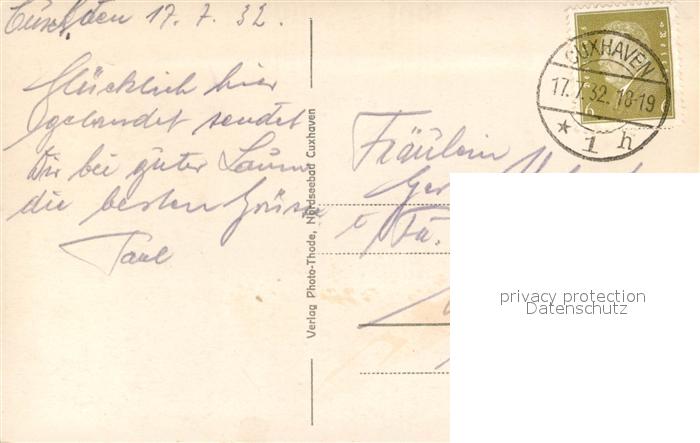 Cuxh. den 17. 7. 32.
Glücklich hier
gelandet sendet
Dir bei guter Laune
die besten Grüsse
Paul
Verlag Photo-Thode, Nordseebad Cuxhaven
CUXHAVEN
17.7.32.18-19
* 1 h
6 6
Fräulein
Fa.
privacy protection
Datenschutz